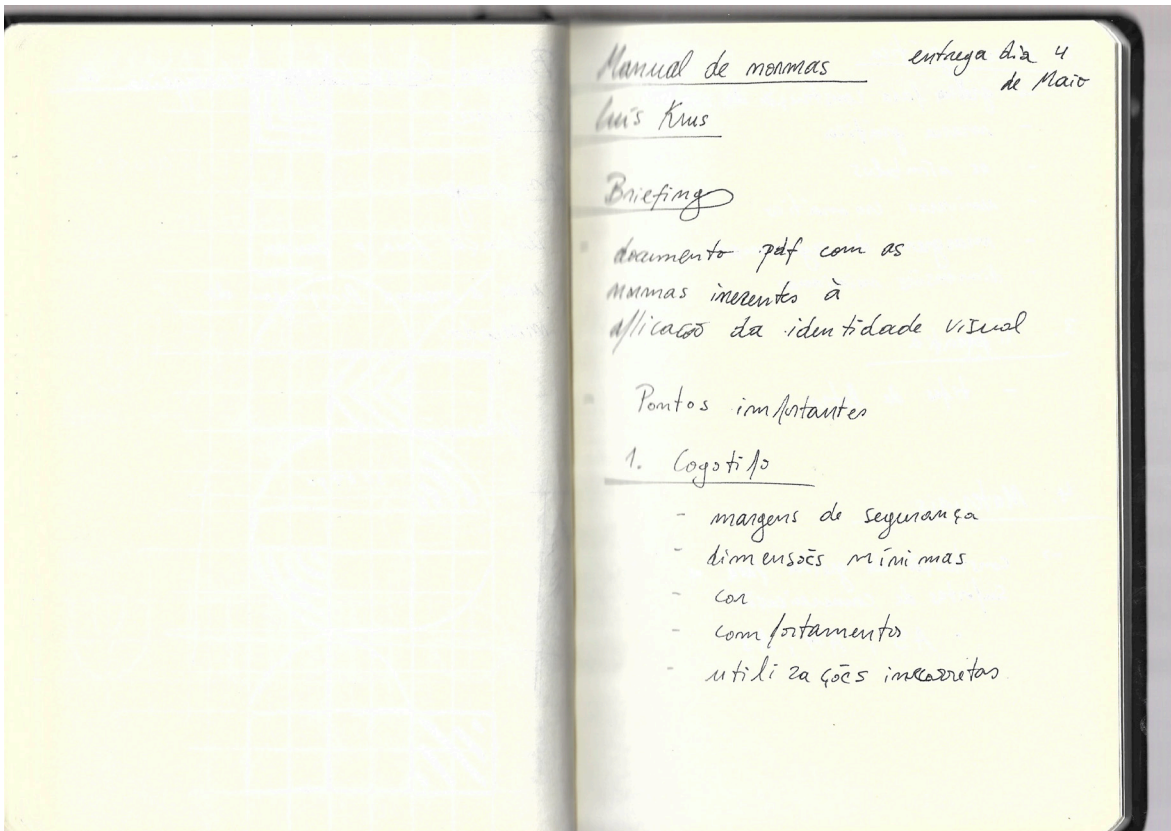 Manual de normas
entrega dia 4
de Maio
Luís Krus
Briefing
documento pdf com as
normas inerentes à
aplicação da identidade visual
Pontos importantes
1. Logotipo
- margens de segurança
- dimensões mínimas
- cor
- comportamento
- utilizações incorretas